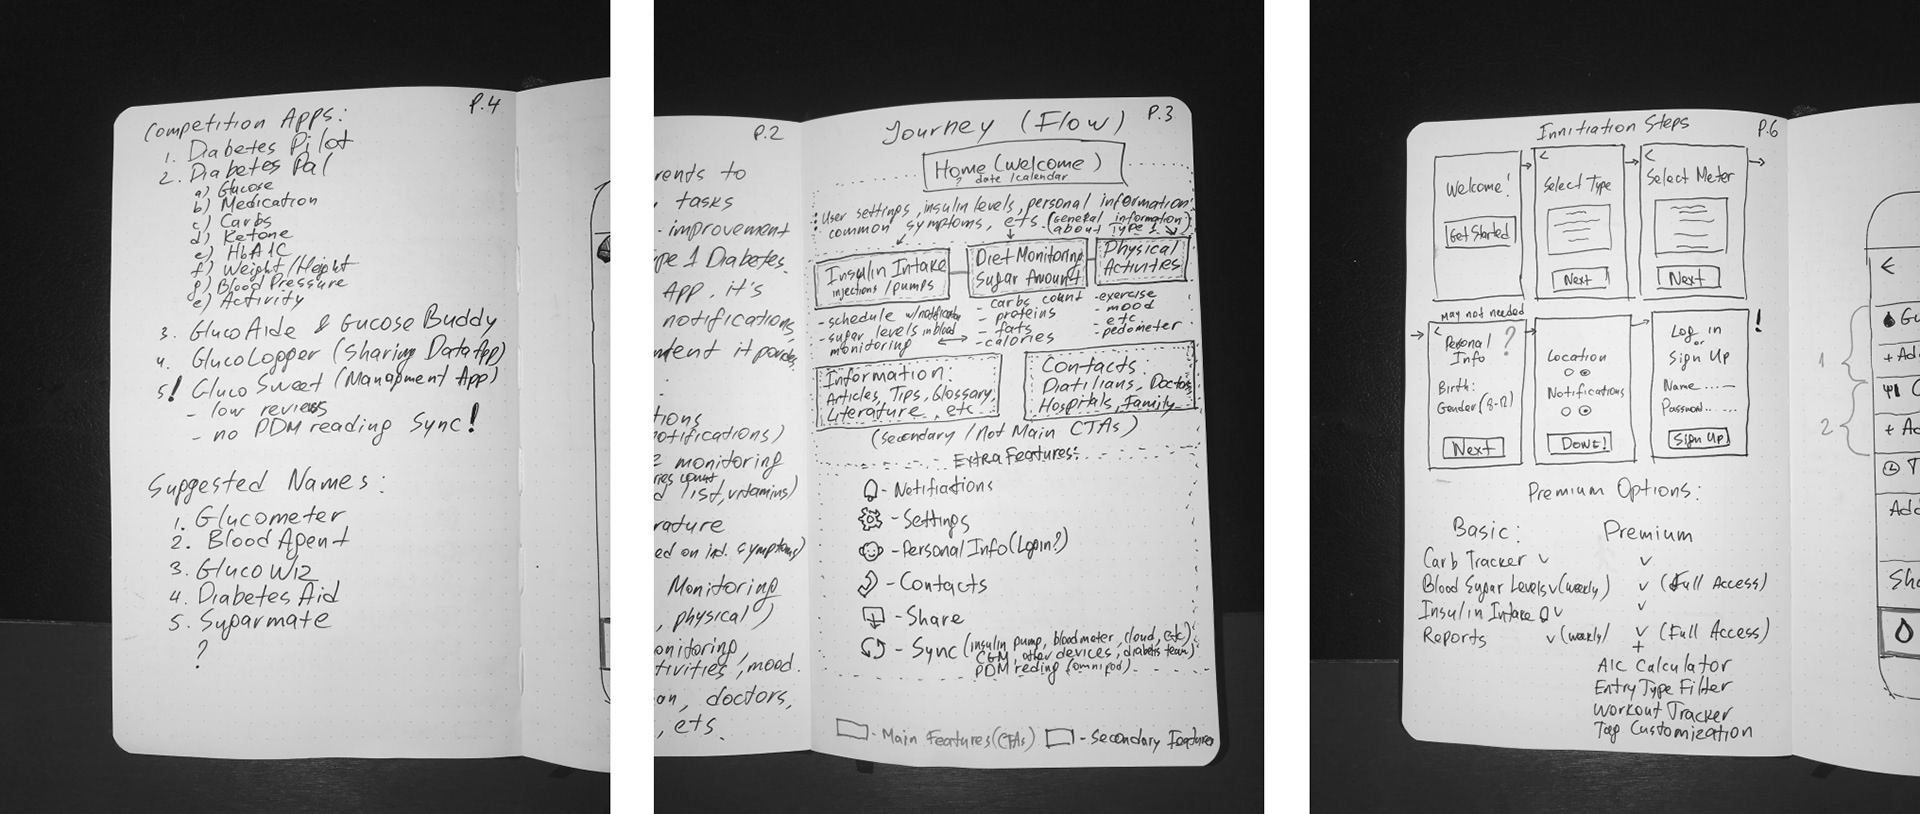 P.4
Competition Apps:
1. Diabetes Pilot
2. Diabetes Pal
a) Glucose
b) Medication
c) Carbs
d) Ketone
e) HbA1C
f) Weight/Height
g) Blood Pressure
e) Activity
3. GlucoAide & Gucose Buddy
4. GlucoLogger (Sharing Data App)
5! Gluco Sweet (Managment App)
- low reviews
- no PDM reading Sync!
Suggested Names:
1. Glucometer
2. Blood Agent
3. Gluco Wiz
4. Diabetes Aid
5. Sugarmate
?
P.2
rents to
tasks
- improvement
pe 1 Diabetes.
App, it's
notifications,
tions
otifications)
monitoring
list, vitamins)
rature
ed on ind. symptoms)
Monitoring
, physical)
onitoring,
tivities, mood.
an, doctors,
, ets.
P.3
Journey (Flow)
Home (welcome)
? date/calendar
User settings, insulin levels, personal information
common symptoms, ets. (general information
about Type 1)
Insulin Intake
injections/pumps
Diet Monitoring
Sugar Amount
Physical
Activities
- schedule w/notification
- sugar levels in blood
monitoring
- carbs count
- proteins
- fats
- calories
- exercise
- mood
etc.
- pedometer
Information:
Articles, Tips, Glossary,
Literature, etc
Contacts:
Diatilians, Doctors
Hospitals, Family
(secondary/Not Main CTAs)
Extra Features:
- Notifiations
- Settings
- Personal Info (Login?)
- Contacts
- Share
- Sync (insulin pump, bloodmeter, cloud, etc)
CGM, other devices, diabetis team)
PDM reding (omnipod)
- Main Features (CTAs)
- Secondary Features
P.6
Innitiation Steps
Welcome!
Get Started
Select Type
Next
Select Meter
Next
may not needed
Personal
Info ?
Birth:
Gender (8-12)
Next
Location
Notifications
Done!
Log in
or
Sign Up
Name
Passwor
Sign Up
!
Premium Options:
Basic:
Premium
Carb Tracker v
v
Blood Sugar Levels v (weekly)
v (Full Access)
Insulin Intake v
v
Reports v (weekly)
v (Full Access)
+
A1C Calculator
Entry Type Filter
Workout Tracker
Tag Customization
1
2
Gu
+ Ad
+ Ad
Add
Sha